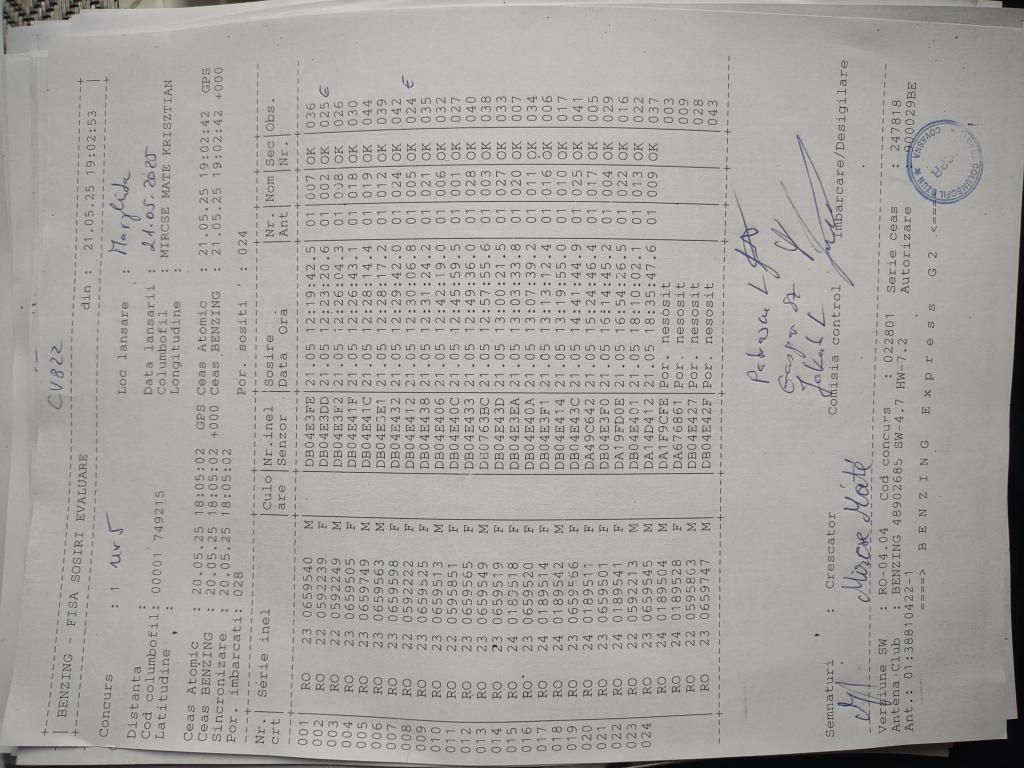 CV822
| BENZING - FISA SOSIRI EVALUARE din : 21.05.25 19:02:53 |
Concurs : 1 nr 5 Loc lansare : Marghita
Distanta : Data lansarii : 21.05.2025
Cod columbofil: 00001 749215 Columbofil : MIRCSE MATE KRISZTIAN
Latitudine : Longitudine :
Ceas Atomic : 20.05.25 18:05:02 GPS Ceas Atomic : 21.05.25 19:02:42 GPS
Ceas BENZING : 20.05.25 18:05:02 +000 Ceas BENZING : 21.05.25 19:02:42 +000
Sincronizare : 20.05.25 18:05:02
Por. imbarcati: 028 Por. sositi : 024
Nr. | Serie inel |Culo |Nr.inel |Sosire |Nr. |Nom |Sec |Obs.
crt| |are |Senzor |Data Ora |Ant | |Nr. |
001 RO 23 0659540 M DB04E3FE 21.05 12:19:42.5 01 007 OK 036
002 RO 22 0592239 F DB04E3DD 21.05 12:23:20.6 01 002 OK 025 €
003 RO 22 0592249 M DB04E3F2 21.05 12:26:04.3 01 008 OK 026
004 RO 23 0659505 F DB04E41F 21.05 12:26:43.1 01 018 OK 030
005 RO 23 0659749 M DB04E41C 21.05 12:28:14.4 01 019 OK 044
006 RO 23 0659563 M DB04E3E1 21.05 12:28:17.2 01 012 OK 039
007 RO 23 0659598 F DB04E432 21.05 12:29:42.0 01 024 OK 042
008 RO 22 0592222 F DB04E412 21.05 12:30:06.8 01 005 OK 024 €
009 RO 23 0659525 F DB04E438 21.05 12:31:24.2 01 021 OK 035
010 RO 23 0659513 M DB04E406 21.05 12:42:19.0 01 006 OK 032
011 RO 22 0595851 F DB04E40C 21.05 12:45:59.5 01 001 OK 027
012 RO 23 0659565 F DB04E433 21.05 12:49:36.0 01 028 OK 040
013 RO 23 0659549 M DB0763BC 21.05 12:57:55.6 01 003 OK 038
014 RO 23 0659519 F DB04E43D 21.05 13:00:21.5 01 027 OK 033
015 RO 24 0189518 F DB04E3EA 21.05 13:03:33.8 01 020 OK 007
016 RO 23 0659520 F DB04E40A 21.05 13:07:39.2 01 011 OK 034
017 RO 24 0189514 F DB04E3F1 21.05 13:13:12.4 01 016 OK 006
018 RO 24 0189542 M DB04E414 21.05 13:19:55.0 01 010 OK 017
019 RO 23 0659566 F DB04E43C 21.05 14:41:44.9 01 025 OK 041
020 RO 24 0189511 F DA49C642 21.05 15:24:46.4 01 017 OK 005
021 RO 23 0659501 F DB04E3F0 21.05 16:14:45.2 01 004 OK 029
022 RO 24 0189541 F DA19FD0E 21.05 16:54:26.5 01 022 OK 016
023 RO 22 0592213 M DB04E401 21.05 18:10:02.1 01 013 OK 022
024 RO 23 0659545 M DA14D412 21.05 18:35:47.6 01 009 OK 037
RO 24 0189504 M DA1F9CFE Por. nesosit 003
RO 24 0189528 F DA676861 Por. nesosit 009
RO 22 0595863 M DB04E427 Por. nesosit 028
RO 23 0659747 M DB04E42F Por. nesosit 043
Semnaturi : Crescator Comisia control Imbarcare/Desigilare
Mircse Máté
Versiune SW : RO-04.04 Cod concurs : 022801 Serie ceas : 247818
Antena Club : BENZING 48902685 SW-4.7 HW-7.2 Autorizare : 000029BE
Ant.: 01:3881042219
====> B E N Z I N G E x p r e s s G 2 <====
COLUMBOFIL
COVASNA